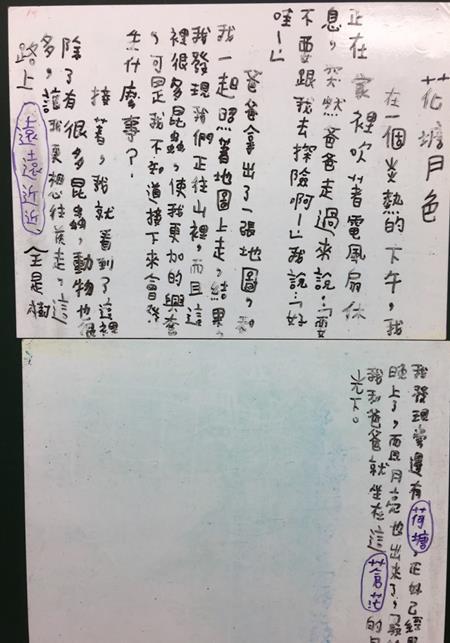 花塘月色
在一個炎熱的下午，我
正在家裡吹著電風扇休
息，突然爸爸走過來說：「要
不要跟我去探險啊！」我說：「好
哇！」
爸爸拿出了一張地圖，和
我一起照著地圖上走，結果
我發現我們正往山裡，而且這
裡很多昆蟲，使我更加的興奮
，可是我不知道接下來會發
生什麼事？
接著，我就看到了這裡
除了有很多昆蟲，動物也很
多，讓我更想往後走，這
路上遠遠近近全是樹
我發現旁邊有荷塘，正好已經是
晚上了，而且月亮也出來了，
我和爸爸就坐在這蒼茫的月
光下。